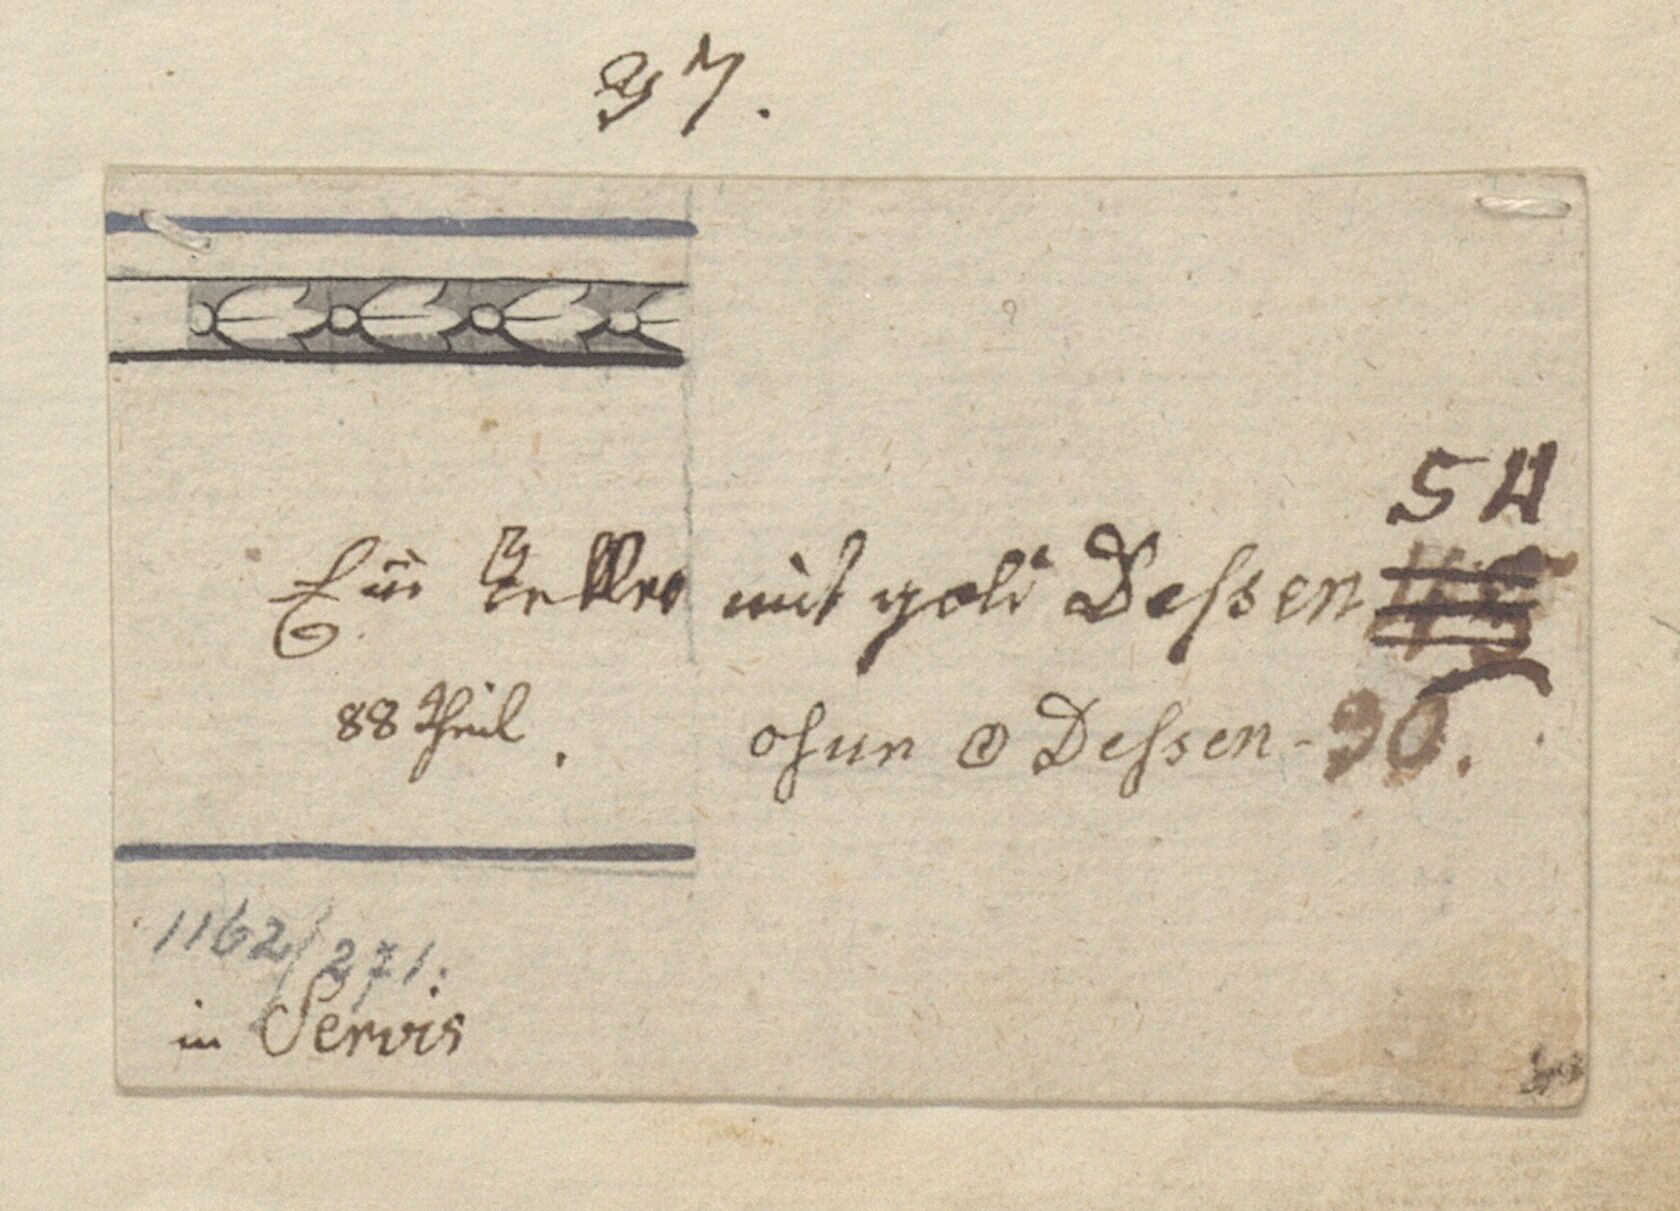 37.
54
Ein Teller mit gold Dessen
88 theil. ohne ☉ Dessen - 30.
1162/271.
in Servis